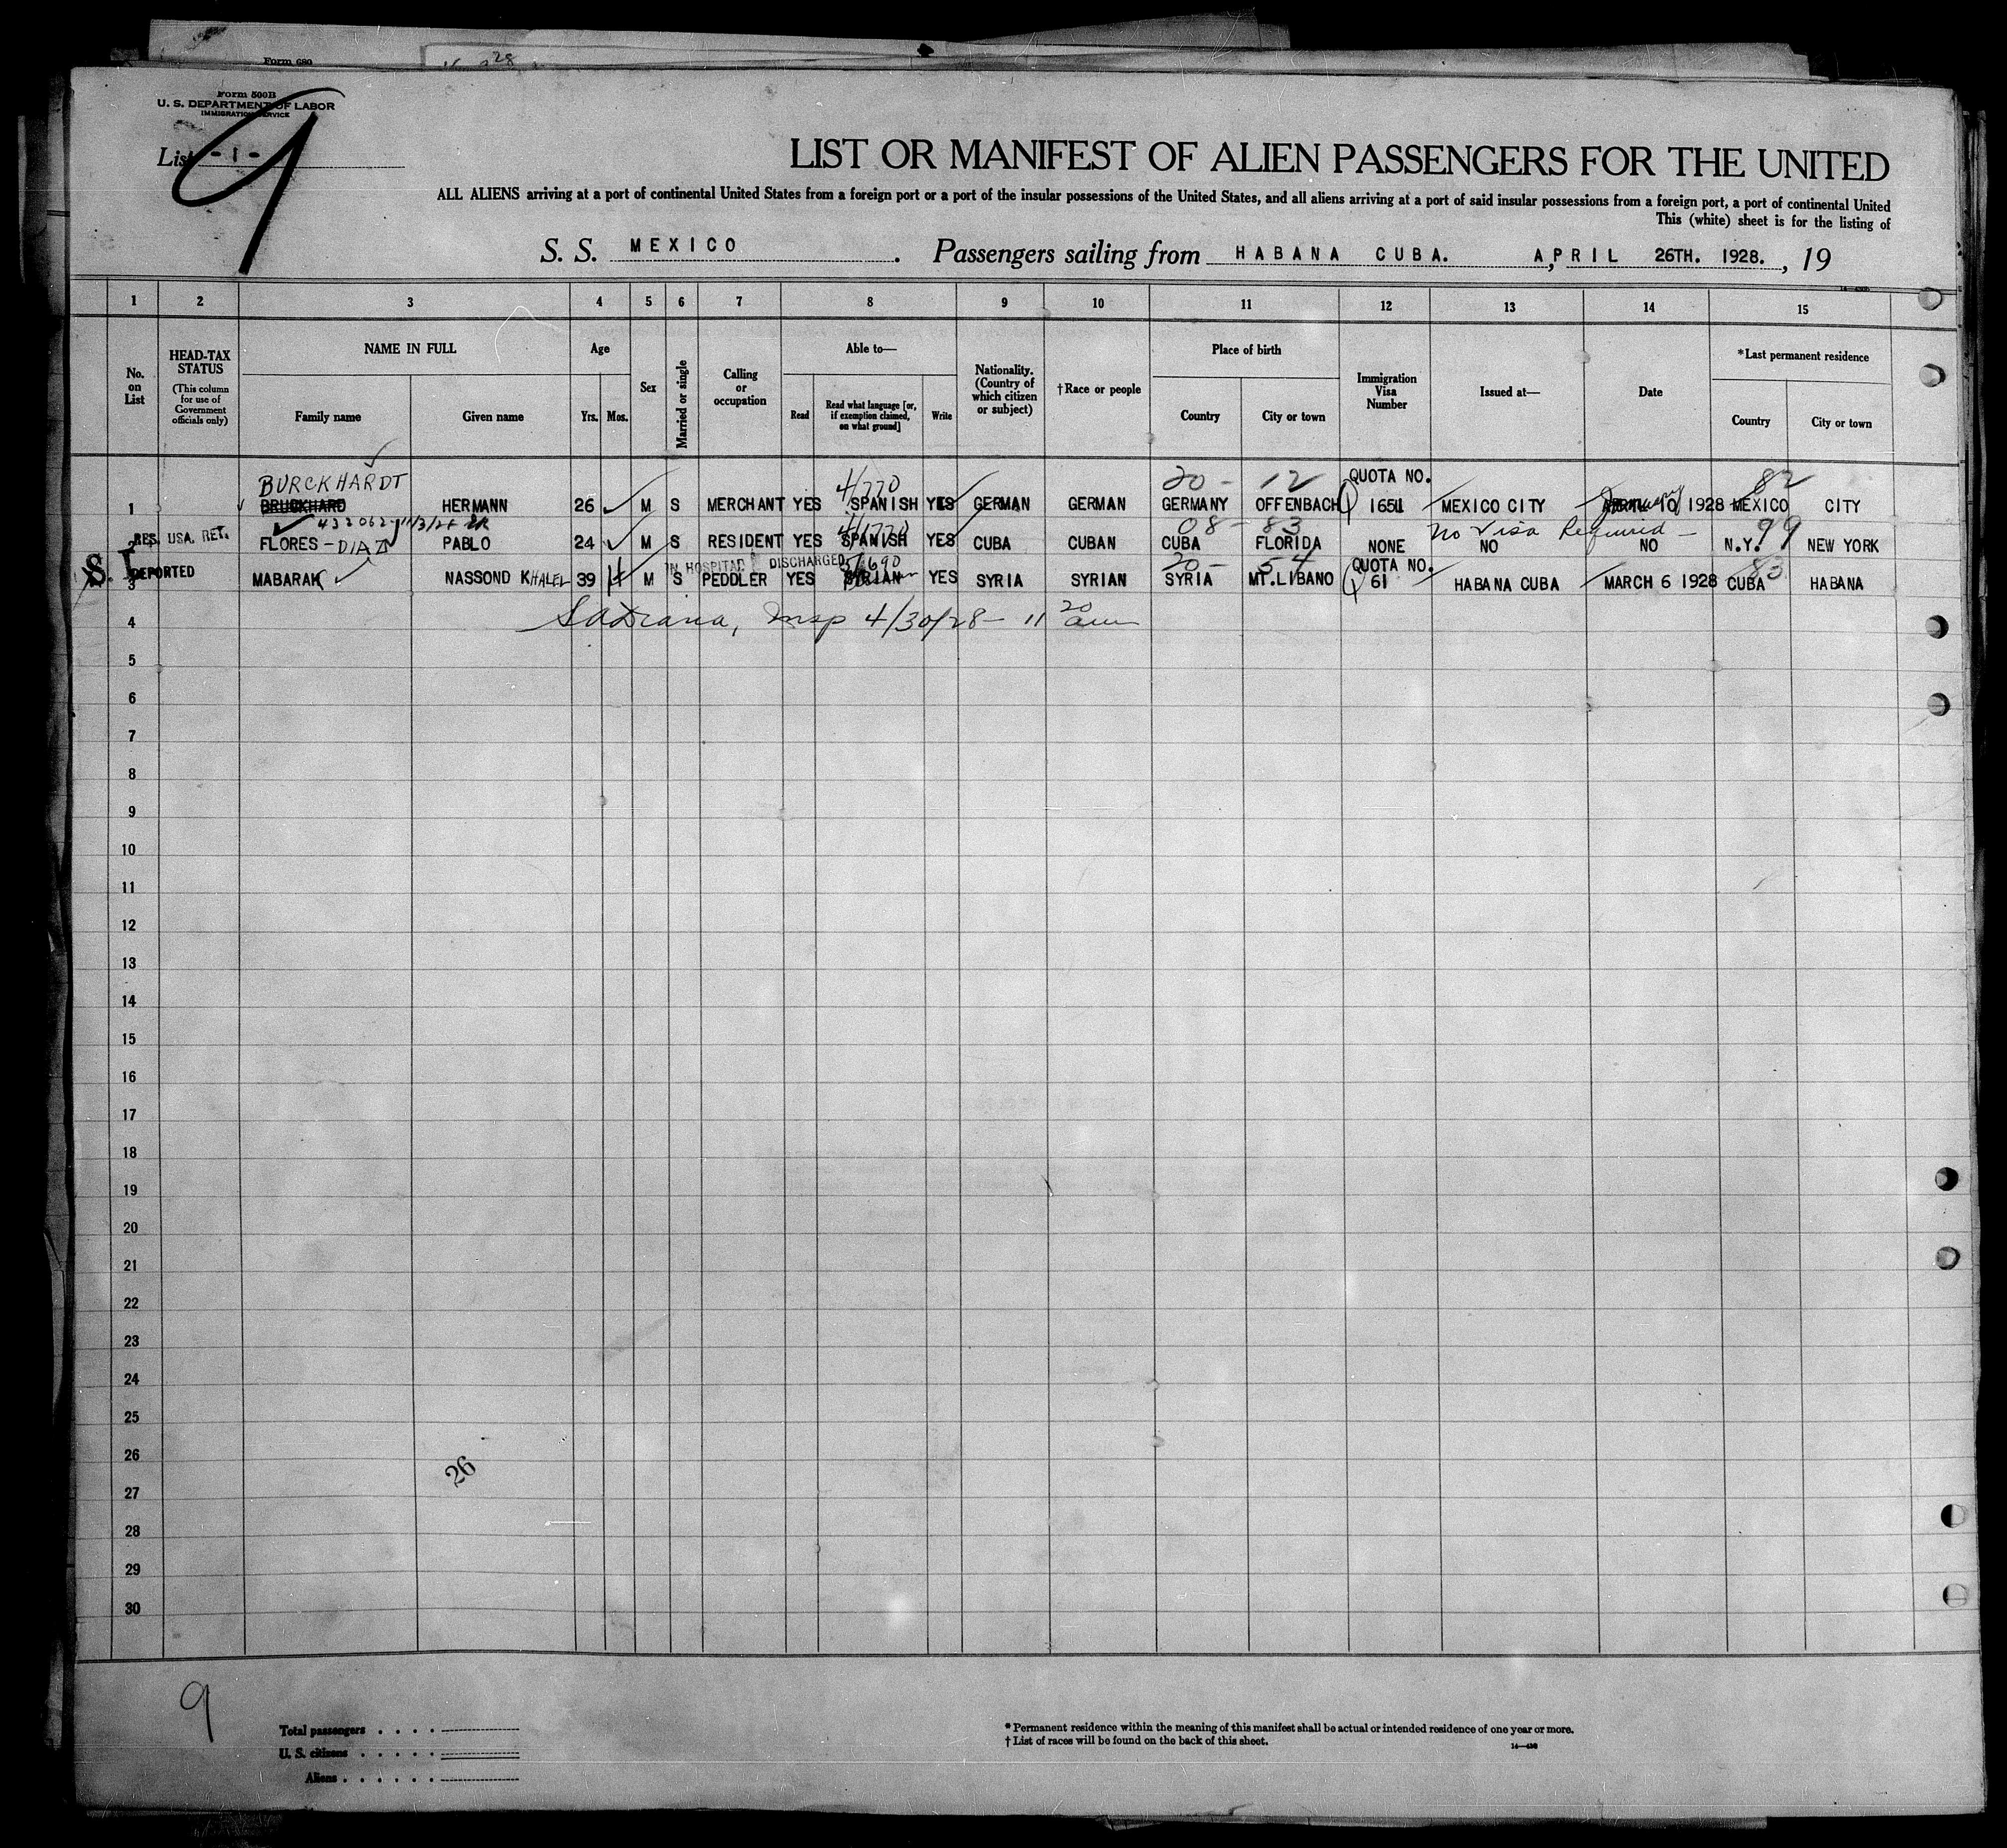 Form 680
28
Form 500B
U. S. DEPARTMENT OF LABOR
IMMIGRATION SERVICE
List - 1 -
9
LIST OR MANIFEST OF ALIEN PASSENGERS FOR THE UNITED
ALL ALIENS arriving at a port of continental United States from a foreign port or a port of the insular possessions of the United States, and all aliens arriving at a port of said insular possessions from a foreign port, a port of continental United
This (white) sheet is for the listing of
S. S. MEXICO . Passengers sailing from HABANA CUBA. APRIL 26TH. 1928. , 19
1 2 3 4 5 6 7 8 9 10 11 12 13 14 15
No. on List
HEAD-TAX STATUS
(This column for use of Government officials only)
NAME IN FULL
Family name
Given name
Age
Yrs. Mos.
Sex
Married or single
Calling or occupation
Able to—
Read
Read what language [or, if exemption claimed, on what ground]
Write
Nationality. (Country of which citizen or subject)
† Race or people
Place of birth
Country
City or town
Immigration Visa Number
Issued at—
Date
* Last permanent residence
Country
City or town
BURCKHARDT 4/770 20 - 12 QUOTA NO. 82
1 BRUCKHARD HERMANN 26 M S MERCHANT YES SPANISH YES GERMAN GERMAN GERMANY OFFENBACH 1651 MEXICO CITY January 10 1928 MEXICO CITY
432062 4/770 08 - 83 No Visa Required - 99
2 RES. USA. RET. FLORES - DIAZ PABLO 24 M S RESIDENT YES SPANISH YES CUBA CUBAN CUBA FLORIDA NONE NO NO N.Y. NEW YORK
S. I. IN HOSPITAL DISCHARGED 5/690 20 - 54 QUOTA NO. 83
3 DEPORTED MABARAK NASSOND KHALEL 39 M S PEDDLER YES SYRIAN YES SYRIA SYRIAN SYRIA MT.LIBANO 61 HABANA CUBA MARCH 6 1928 CUBA HABANA
4 Insp 4/30/28 - 11 20 am
5
6
7
8
9
10
11
12
13
14
15
16
17
18
19
20
21
22
23
24
25
26
26
27
28
29
30
9
Total passengers . . . .
U. S. citizens . . . . .
Aliens . . . . . .
* Permanent residence within the meaning of this manifest shall be actual or intended residence of one year or more.
† List of races will be found on the back of this sheet.